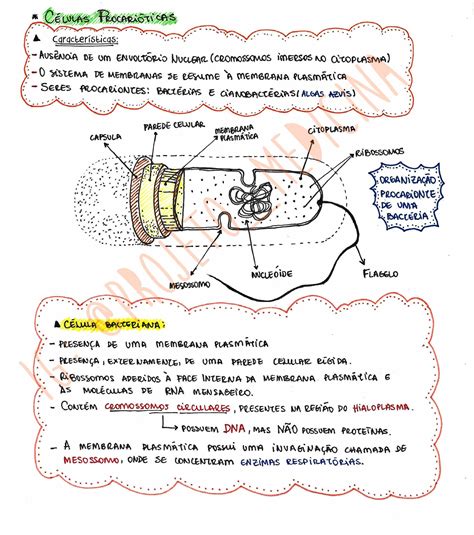 ★ Células Procarióticas
▲ Características:
- Ausência de um envoltório nuclear (cromossomos imersos no citoplasma)
- O sistema de membranas se resume à membrana plasmática
- Seres procariontes: bactérias e cianobactérias (algas azuis)
Capsula
Parede celular
Membrana
plasmática
Citoplasma
Ribossomos
Organização
procarionte
de uma
bactéria
Mesossomo
Nucleóide
Flagelo
▲ Célula bacteriana:
- Presença de uma membrana plasmática
- Presença, externamente, de uma parede celular rígida.
- Ribossomos aderidos à face interna da membrana plasmática e
às moléculas de RNA mensageiro.
- Contém cromossomos circulares, presentes na região do hialoplasma.
→ Possuem DNA, mas não possuem proteínas.
- A membrana plasmática possui uma invaginação chamada de
mesossomo, onde se concentram enzimas respiratórias.